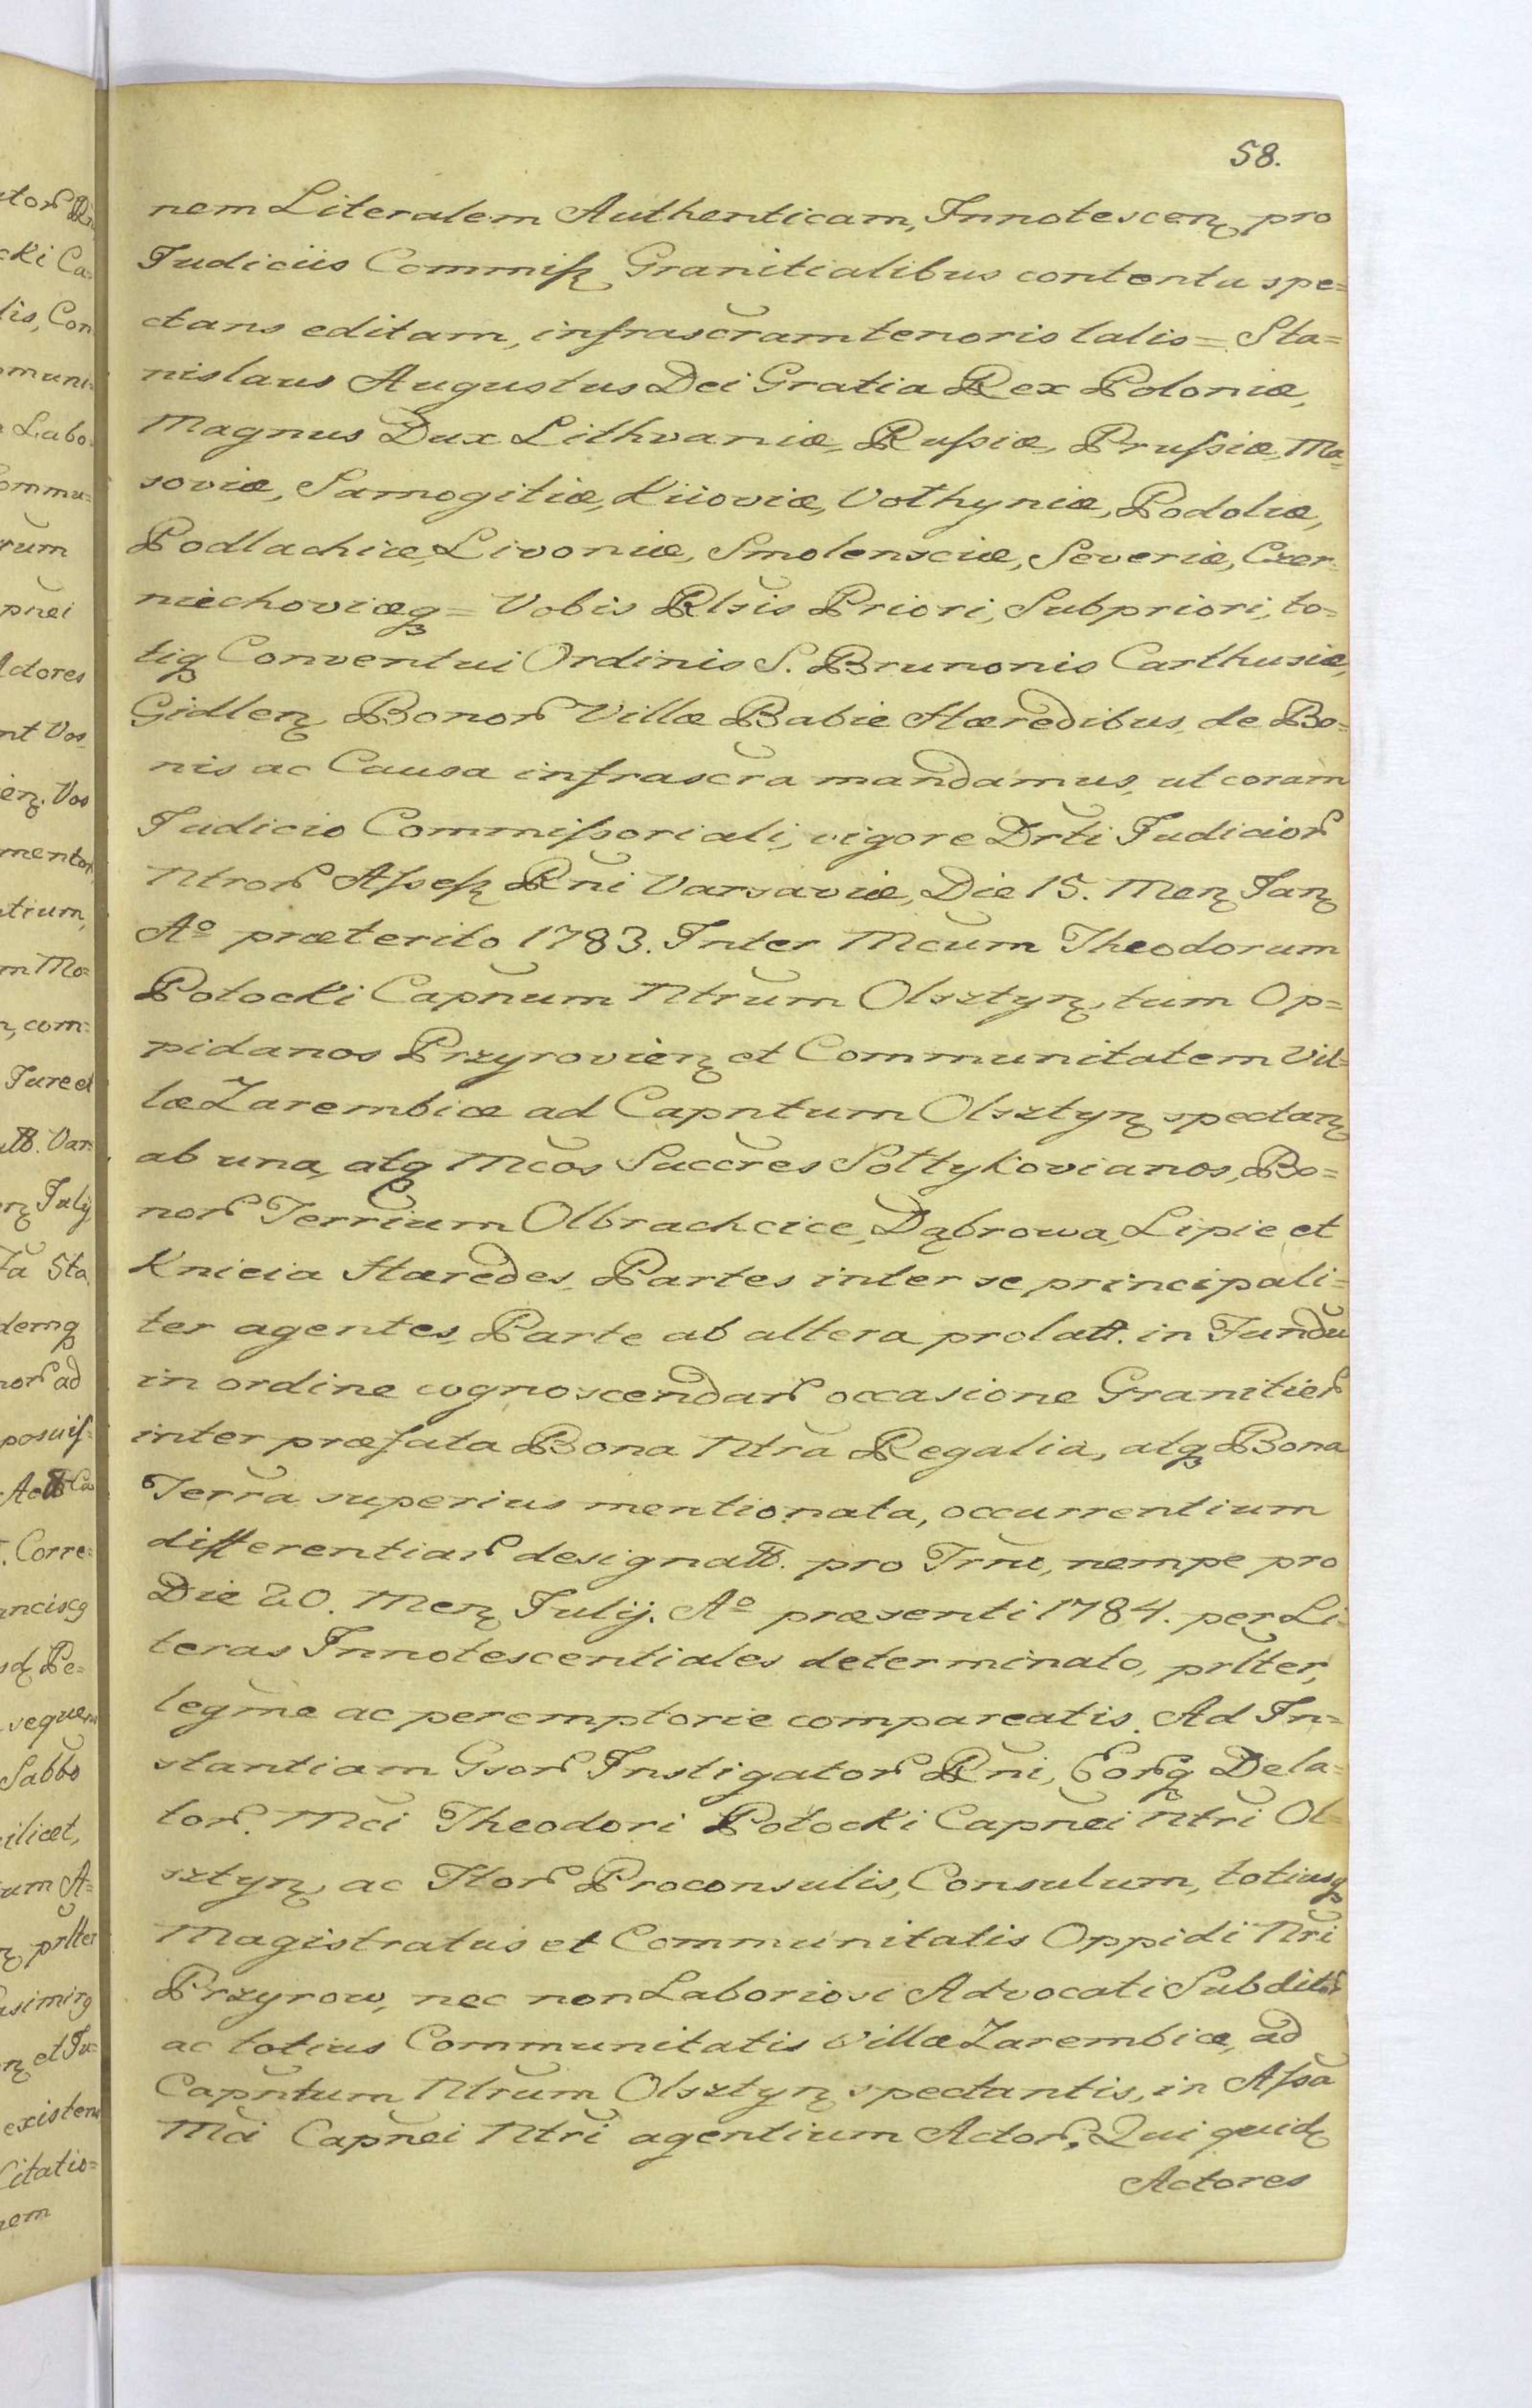 58.
nem Literalem Authenticam, Innotescenꝫ pro
Judiciis Commissꝫ Granitialibus contentu spe=
ctans editam, infrascr̃am tenoris talis = Sta=
nislaus Augustus Dei Gratia Rex Poloniæ,
Magnus Dux Lithvaniæ, Russiæ, Prussiæ, Ma=
soviæ, Samogitiæ, Kiioviæ, Volhyniæ, Podoliæ,
Podlachiæ, Livoniæ, Smolensciæ, Severiæ, Czer=
niechoviæqꝫ = Vobis Rlsis Priori, Subpriori, to=
tiqꝫ Conventui Ordinis S. Brunonis Carthusiæ,
Gidlenꝫ Bonoꝝ Villæ Babie Hæredibus, de Bo=
nis ac Causa infrascr̃a mandamus, ut coram
Judicio Commissoriali, vigore Dr̃ti Judicioꝝ
Ntroꝝ Assessꝫ Rñi Varsaviæ, Die 15. Menꝫ Janꝫ
Aº præterito 1783. Inter Mcũm Theodorum
Potocki Capñum Ntrũm Olsztynꝫ, tum Op=
pidanos Przyrovienꝫ et Communitatem Vil=
læ Zarembice ad Capñtum Olsztynꝫ spectanꝫ
ab una, atqꝫ Mcõs Succr̃es Sołtykovianos, Bo=
noꝝ Terrĩum Olbrachcice, Dąbrowa, Lipie et
Knieia Hæredes, Partes inter se principali=
ter agentes, Parte ab altera prolatt. in Fundũ
in ordine cognoscendaꝝ occasione Granitieꝝ
inter præfata Bona Ntrã Regalia, atqꝫ Bona
Terrã superius mentionata, occurrentium
differentiaꝝ designatt. pro Tr̃no, nempe pro
Die 20. Menꝫ Julij. Aº præsenti 1784. per Li=
teras Innotescentiales determinato, prl̃ter,
legm̃e ac peremptorie compareatis. Ad In=
stantiam Gsoꝝ Instigatoꝝ Rñi, Eoꝝqꝫ Dela=
toꝝ. Mcĩ Theodori Potocki Capñei Ntrĩ Ol=
sztynꝫ, ac Hoꝝ Proconsulis, Consulum, totiusqꝫ
Magistratus et Communitatis Oppidi Nrĩ
Przyrow, nec non Laboriosi Advocati Subditoꝝ
ac totius Communitatis Villæ Zarembice, ad
Capñtum Ntrũm Olsztynꝫ spectantis, in Assã
Mcĩ Capñei Ntrĩ agentium Actoꝝ. Qui quidꝫ
Actores